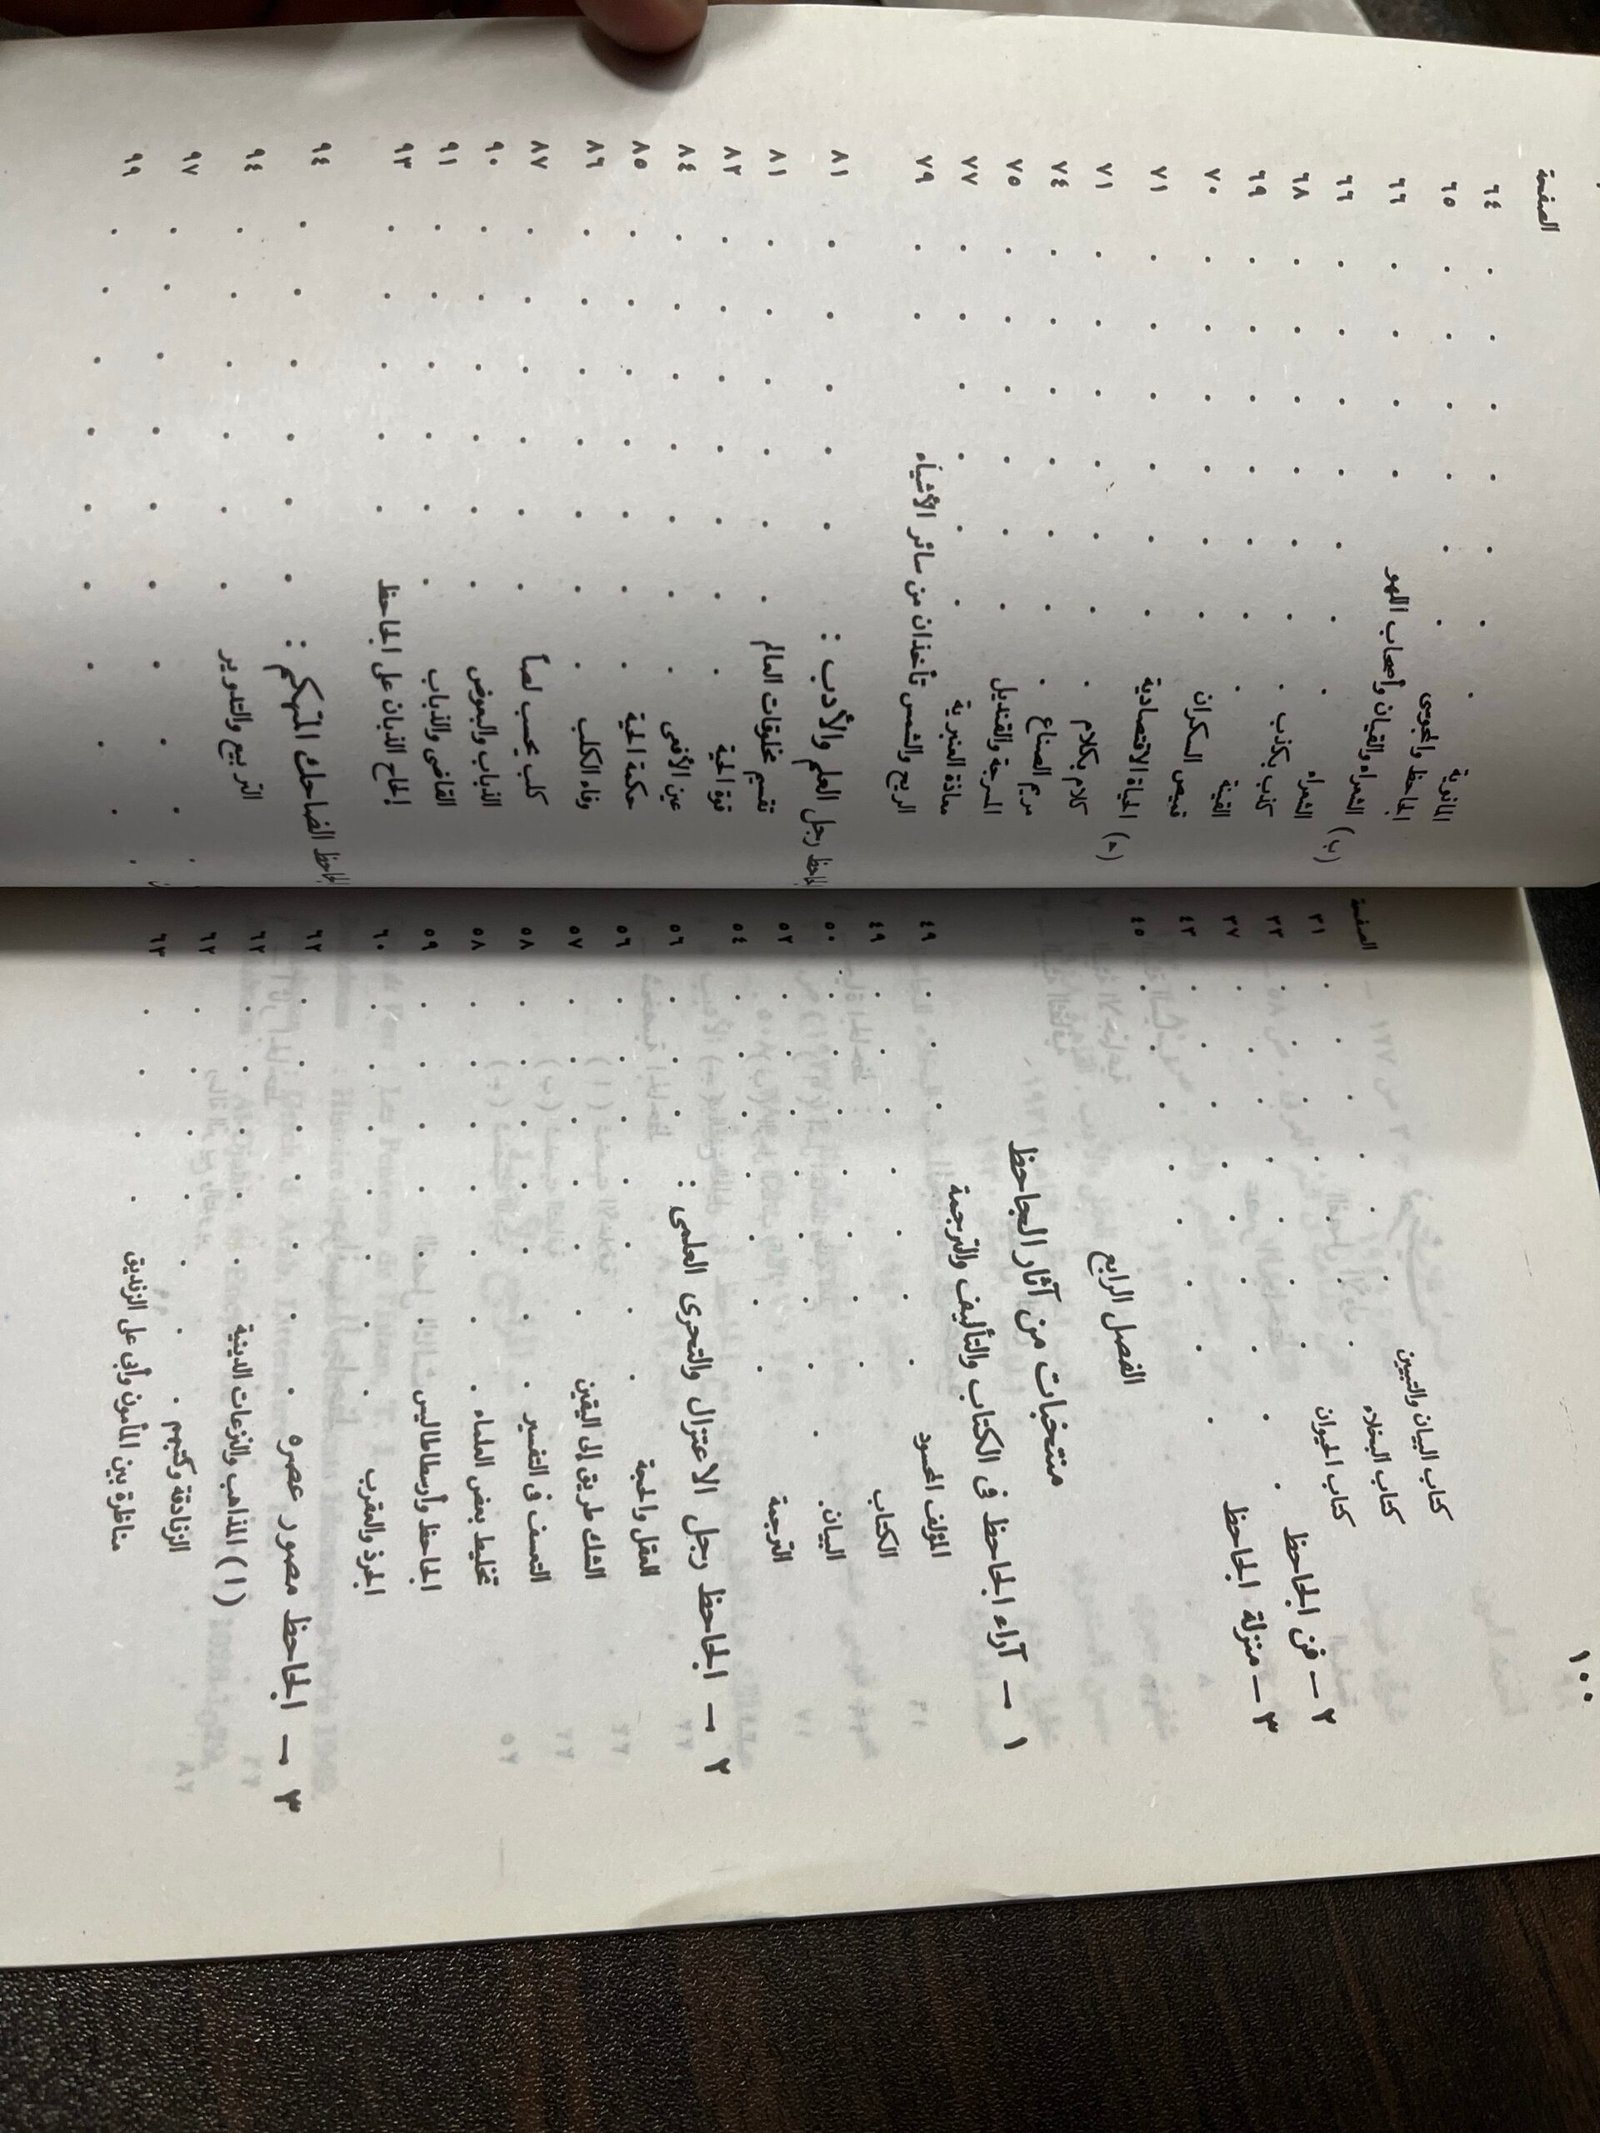 ١٠٠
الصفحة
كتاب البيان والتبيين . . . . . . ٣١
كتاب البخلاء . . . . . . ٣٣
كتاب الحيوان . . . . . . ٣٧
٢ — فن الجاحظ . . . . . . ٤٣
٣ — منزلة الجاحظ . . . . . . ٤٥
الفصل الرابع
منتخبات من آثار الجاحظ
١ — آراء الجاحظ فى الكتاب والتأليف والترجمة
المؤلف المحسود . . . . . . ٤٩
الكتاب . . . . . . ٤٩
البيان . . . . . . ٥٠
الترجمة . . . . . . ٥٢
٢ — الجاحظ رجل الاعتزال والتحرى العلمى : . . . ٥٤
العقل والحجة . . . . . . ٥٦
الشك طريق إلى اليقين . . . . . . ٥٦
التعسف فى التفسير . . . . . . ٥٧
تخليط بعض العلماء . . . . . . ٥٨
الجاحظ وأرسطاطاليس . . . . . . ٥٨
الجرذ والعقرب . . . . . . ٥٩
٣ — الجاحظ مصور عصره . . . . . . ٦٠
(ا) المذاهب والنزعات الدينية . . . . . . ٦٢
الزنادقة وكتبهم . . . . . . ٦٢
مناظرة بين المأمون وأبى على الزنديق . . . . ٦٣
الصفحة
المانوية . . . . . . ٦٤
الجاحظ والمجوسى . . . . . . ٦٥
(ب) الشعراء والقيان وأصحاب اللهو . . . . ٦٦
الشعراء . . . . . . ٦٦
كذب بكذب . . . . . . ٦٨
القينة . . . . . . ٦٩
قميص السكران . . . . . . ٧٠
(ح) الحياة الاقتصادية . . . . . . ٧١
كلام بكلام . . . . . . ٧١
مريم الصناع . . . . . . ٧٤
المسرجة والقنديل . . . . . . ٧٥
معاذة العنبرية . . . . . . ٧٧
الريح والشمس تأخذان من سائر الأشياء . . ٧٩
الجاحظ رجل العلم والأدب : . . . . . ٨١
تقسيم مخلوقات العالم . . . . . . ٨١
قوة الحية . . . . . . ٨٣
عين الأفعى . . . . . . ٨٤
حكمة الحية . . . . . . ٨٥
وفاء الكلب . . . . . . ٨٦
كلب يحسب لصاً . . . . . . ٨٧
الذباب والبعوض . . . . . . ٩٠
القاضى والذباب . . . . . . ٩١
إلحاح الذبان على الجاحظ . . . . . ٩٣
الجاحظ الضاحك المتهكم : . . . . . . ٩٤
التربيع والتدوير . . . . . . ٩٤
. . . . . . ٩٧
. . . . . . ٩٩